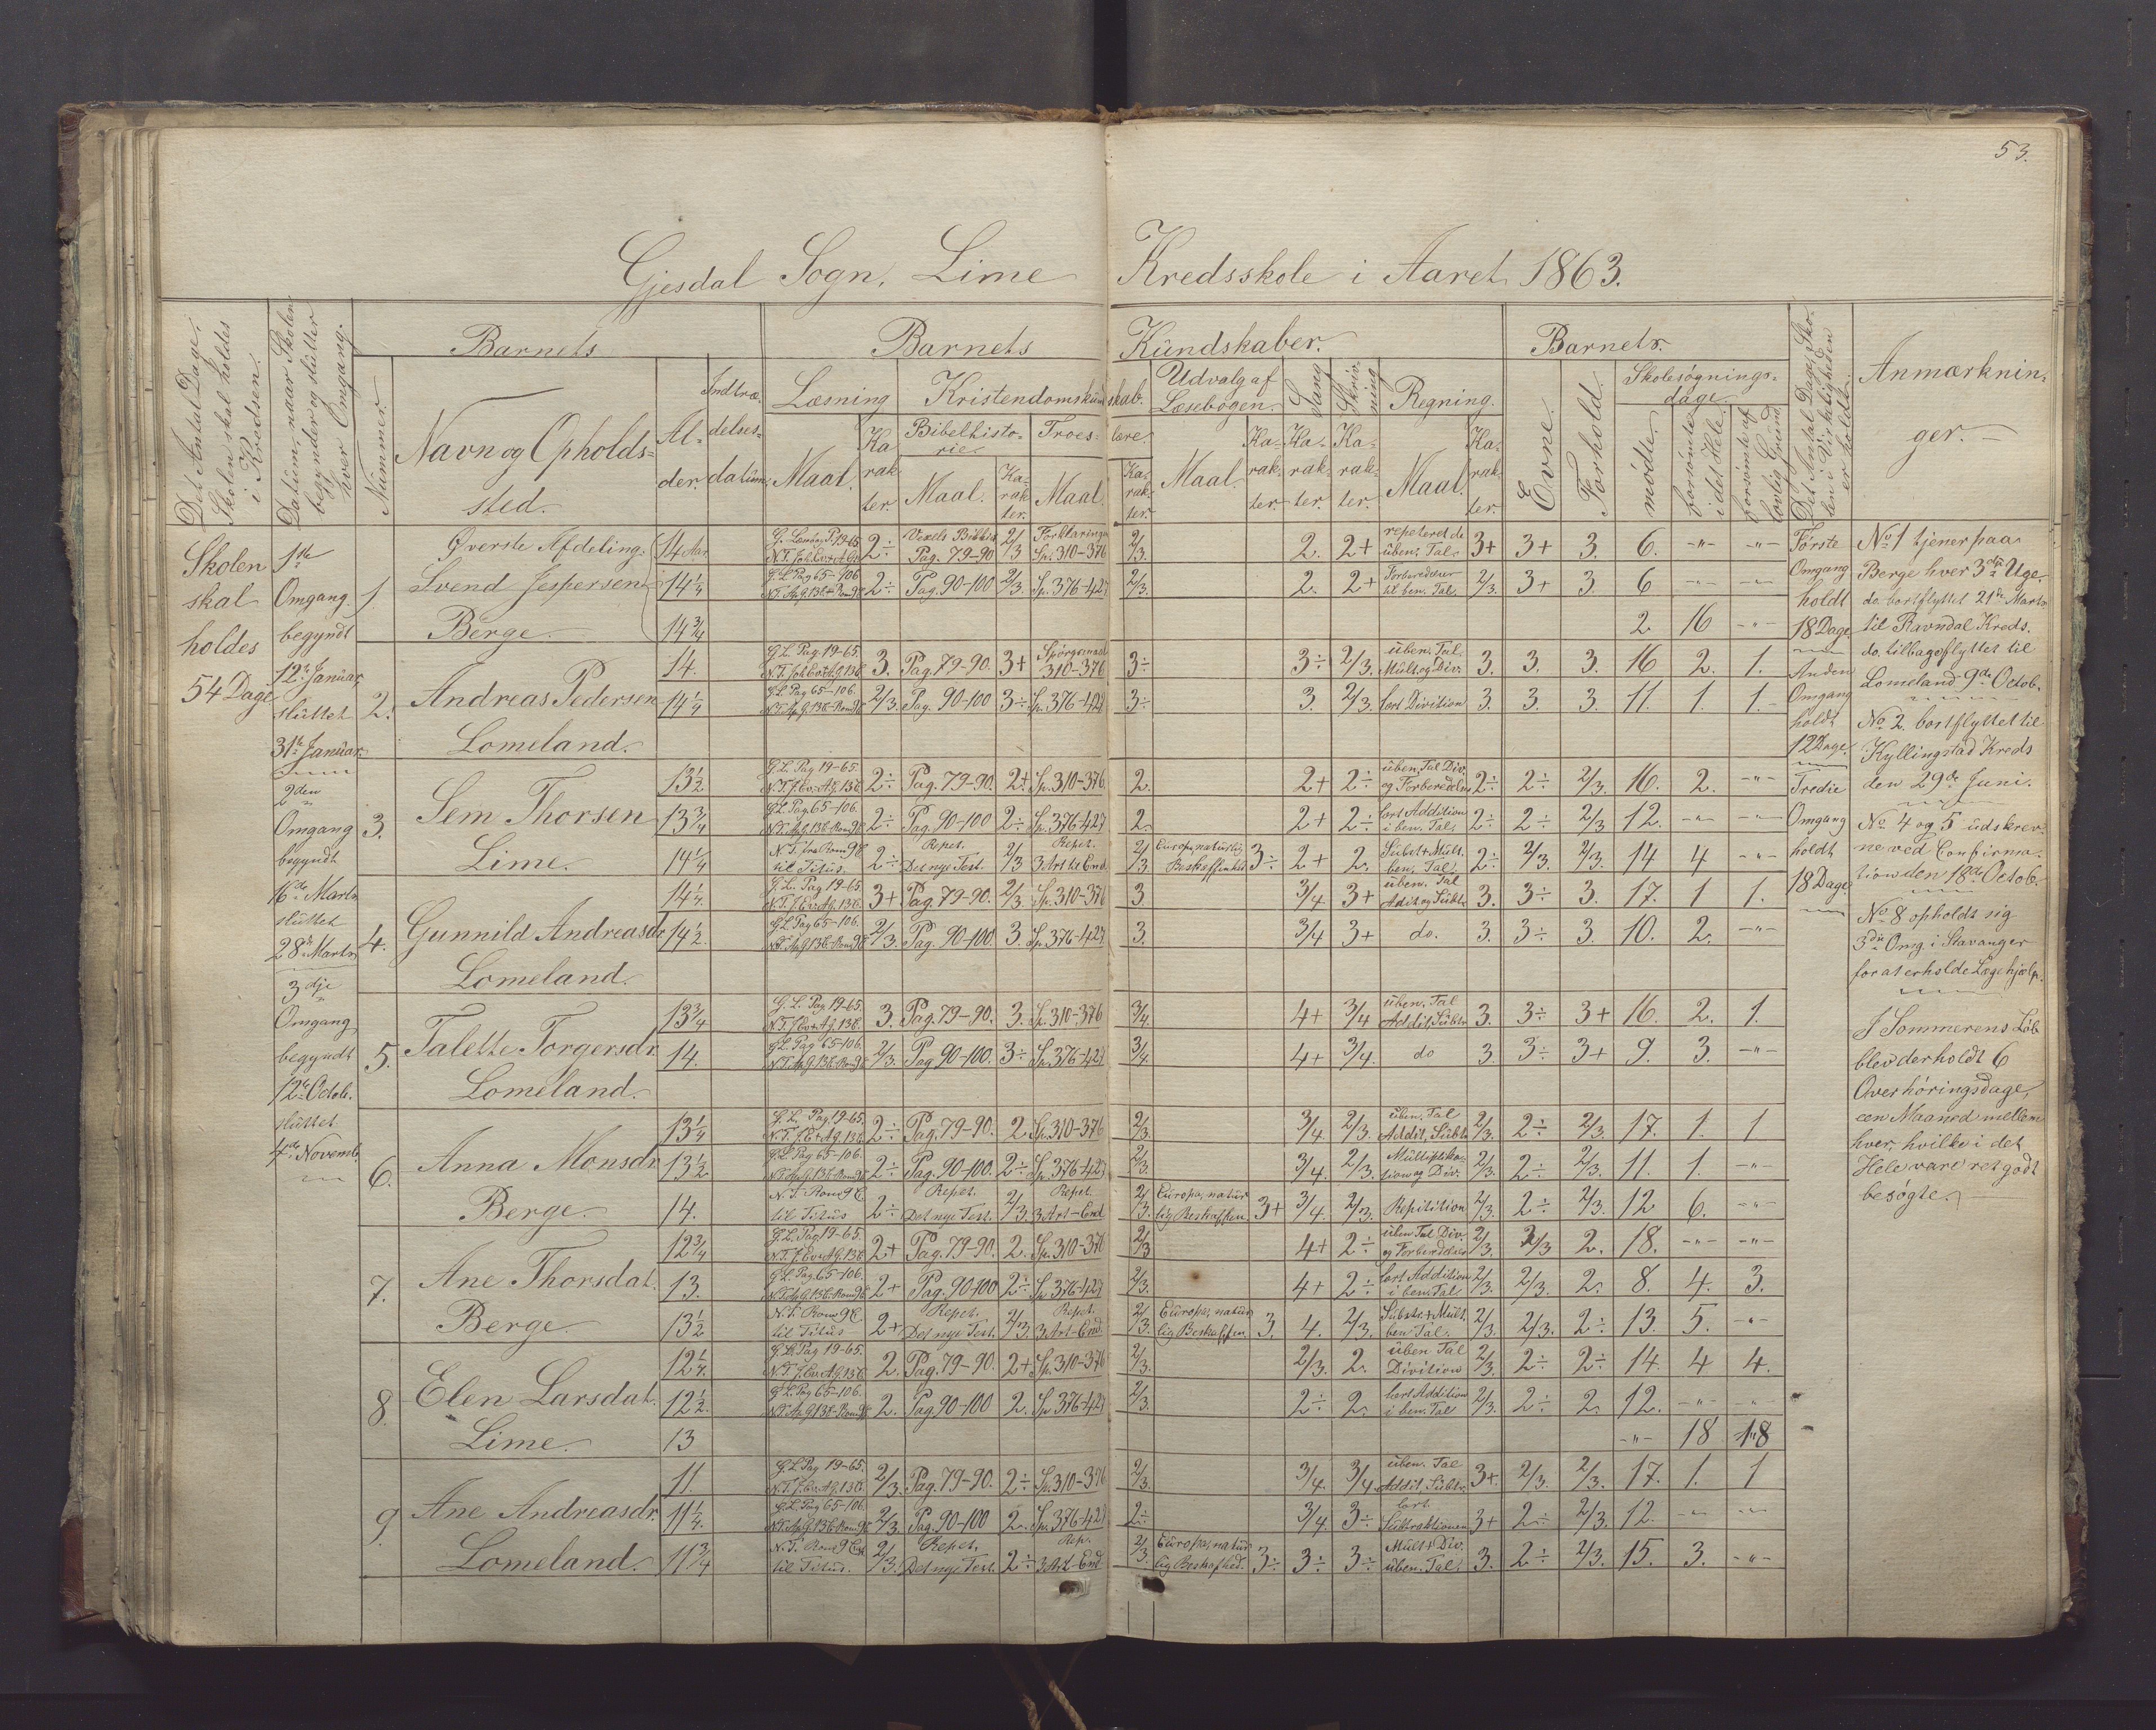 53.
Gjesdal Sogn, Lime Kredsskole i Aaret 1863.
Det Antal Dage, Skolen skal holdes i Kredsen.
Datum, naar Skolen begynder og slutter hver Omgang.
Barnets
Nummer.
Navn og Opholds-
sted.
Al-
der.
Indtræ-
delses-
datum.
Barnets Kundskaber.
Læsning
Maal.
Ka-
rak-
ter.
Kristendomskundskab.
Bibelhisto-
rie.
Maal.
Ka-
rak-
ter.
Troes-lære.
Maal.
Ka-
rak-
ter.
Udvalg af
Læsebogen.
Maal.
Ka-
rak-
ter.
Sang
Ka-
rak-
ter.
Skriv-
ning
Ka-
rak-
ter.
Regning.
Maal.
Ka-
rak-
ter.
Barnets.
Evne.
Forhold.
Skolesøgnings-
dage.
mødte.
forsømte i det Hele.
forsømte af lovlig Grund.
Det Antal Dage, Sko-
len i Virkeligheden
er holdt.
Anmærknin-
ger.
Skolen
skal
holdes
54 Dage
1ste
Omgang
begyndt
12te Januar,
sluttet
31te Januar.
2den
Omgang
begyndt
16de Marts
sluttet
28de Marts
3dje
Omgang
begyndt
12te Octob.
sluttet
4de Novemb.
Øverste Afdeling.
1. Svend Jespersen
Berge.
14 Aar G. Læsebog P. 19-65 N.T. Joh. Ev. + A. G. 2÷ Vexels Bibelhist. Pag. 79-90 2/3 Forklaringen Sp. 310-376 2/3. 2. 2+ repeterede uben. Tal. 3+ 3+ 3. 6. -"- -"-
14 1/4 G. L. Pag 65-106 2÷ Pag. 90-100 2/3. Sp. 376-427 2/3. 2. 2+ Forberedelser til ben. Tal. 2/3. 3+ 3. 6 -"- -"-
14 3/4 2. 16 -"-
2. Andreas Pedersen
Lomeland.
14. G. L. Pag. 19-65. 3. Pag. 79-90. 3+ Spørgsmaal 310-376 3÷ 3÷ 2/3. uben. Tal. Mult. og Div. 3. 3. 3. 16 2. 1.
14 1/4 G. L. Pag 65-106. 2/3. Pag. 90-100 3÷ Sp. 376-427 3÷ 3. 2/3. fort Division 3. 3. 3. 11. 1. 1.
3. Sem Thorsen
Lime.
13 1/2 G. L. Pag 19-65. 2÷ Pag. 79-90. 2+ Sp. 310-376. 2. 2+ 2÷ uben. Tal Div. og Forberedelse 2÷ 2÷ 2/3. 16. 2. -"-
13 3/4 G. L. Pag 65-106. 2÷ Pag. 90-100 2÷ Sp. 376-427 2. 2+ 2÷ fort Addition i ben. Tal. 2÷ 2÷ 2/3 12. -"- -"-
14 1/4 N. T. fra Rom 9 C. til Titus. 2÷ Repet. Det nye Test. 2/3 Repet. 3 Art til End. 2/3 Europas naturlig Beskaffenhed 3÷ 2+ 2. Subst + Mult. ben. Tal. 2÷ 2/3. 2/3. 14 4 -"-
4. Gunnild Andreasdr.
Lomeland.
14 1/4. G. L. Pag 19-65. 3+ Pag. 79-90. 2/3. Sp. 310-376 3 3/4 3+ uben. Tal Addit og Subtr 3. 3÷ 3. 17. 1 1.
14 1/2. G. L. Pag 65-106. 2/3. Pag. 90-100. 3. Sp. 376-427 3. 3/4 3+ do. 3. 3÷ 3. 10. 2. -"-
5. Talette Torgersdr.
Lomeland.
13 3/4 G. L. Pag 19-65. 3. Pag. 79-90. 3. Sp. 310-376 3/4. 4+ 3/4 uben. Tal Addit, Subtr 3. 3÷ 3+ 16. 2. 1.
14. G. L. Pag 65-106. 2/3. Pag 90-100. 3÷ Sp. 376-427 3/4. 4+ 3/4. do 3. 3÷ 3+ 9. 3. -"-
6. Anna Monsdr.
Berge.
13 1/4 G. L. Pag 19-65. 2÷ Pag. 79-90. 2 Sp. 310-376 2/3. 3/4. 2/3. uben. Tal Addit, Subtr 2/3. 2÷ 2/3. 17. 1. 1
13 1/2 G. L. Pag 65-106. 2÷ Pag. 90-100. 2÷ Sp. 376-427 2/3. 3/4. 2/3. Multiplika-tion og Div. 2/3. 2÷ 2/3. 11. 1. -"-
14. N. T. Rom 9 C til Titus 2÷ Repet. Det nye Test. 2/3. Repet. 3 Art-End 2/3. Europas natur lig Beskaffen. 3+ 3/4. 2/3. Repitition 2/3. 2÷ 2/3. 12 6. -"-
7. Ane Thorsdat.
Berge.
12 3/4 G. L. Pag 19-65. 2+ Pag. 79-90. 2. Sp. 310-376 2/3 4+ 2÷ uben Tal Div. og Forberedelse 2/3. 2/3 2. 18. -"- -"-
13. G. L. Pag. 65-106. 2+ Pag. 90-100 2÷ Sp 376-427 2/3. 4+ 2÷ fort Addition i ben. Tal 2/3. 2/3. 2. 8. 4. 3.
13 1/2 N. T. Rom 9 C til Titus 2+ Repet. Det nye Test. 2/3. Repet. 3 Art-End. 2/3. Europas natur lig Beskaffen. 3. 4. 2/3. Subtr. + Mult. ben Tal. 2/3. 2/3. 2÷ 13. 5. -"-
8. Elen Larsdat.
Lime.
12 1/4. G. L. Pag 19-65. 2. Pag. 79-90. 2+ Sp. 310-376 2/3. 2/3. 2. uben Tal Division 2/3. 2÷ 2÷ 14. 4 4.
12 1/2. G. L. Pag 65-106. 2. Pag 90-100 2. Sp 376-427 2/3. 2÷ 2. fort Addition i ben. Tal 2/3. 2÷ 2. 12. -"- -"-
13 -"- 18 18
9. Ane Andreasdr.
Lomeland.
11. G. L. Pag 19-65. 2/3. Pag. 79-90. 2÷ Sp. 310-376 2/3. 3/4. 3/4. uben. Tal Addit, Subtr. 3+ 2/3. 2/3. 17. 1. 1
11 1/4. G. L. Pag 65-106. 2/3 Pag. 90-100 2. Sp. 376-427 2÷ 3/4. 3÷ fort. Subtraktionen 3+ 2÷ 2/3. 12. -"- -"-
11 3/4 N. T. Rom 9 C til Titus. 2/3. Repet. Det nye Test. 2÷ Rep. 3 Art-End 2/3. Europas natur lig Beskafhed. 3÷ 3÷ 3÷ Mult + Div. uben. Tal. 3. 2÷ 2/3. 15. 3. -"-
Første
Omgang
holdt
18 Dage.
Anden
Omgang
holdt
12 Dage.
Tredie
Omgang
holdt
18 Dage.
No 1 tjener paa
Berge hver 3die Uge.
do. bortflyttet 21de Marts
til Ravndal Kreds.
do. tilbageflyttet til
Lomeland 9de Octob.
No 2. bortflyttet til
Kyllingstad Kreds
den 29de Juni.
No 4 og 5 udskrev-
ne ved Confirma-
tion den 18de Octob.
No 8 opholdt sig
3die Omg. i Stavanger
for at erholde Lægehjælp.
I Sommerens Løb
blev der holdt 6
Overhøringsdage,
een Maaned mellem
hver, hvilke i det
Hele vare ret godt
besøgte.